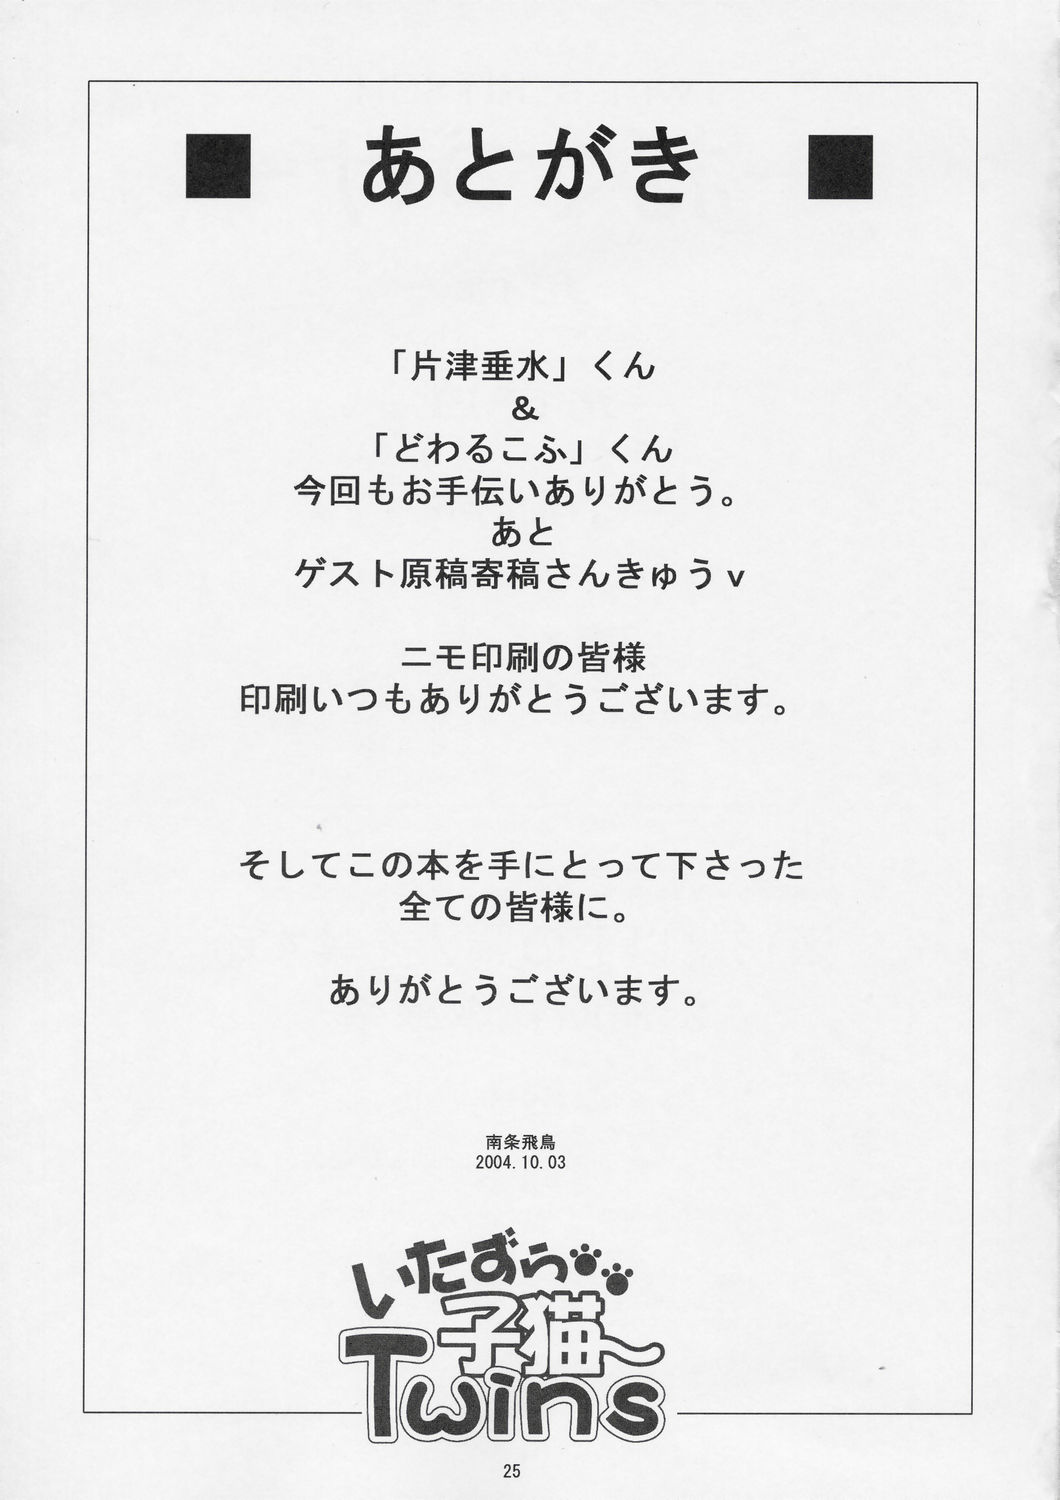 ■ あとがき ■
「片津垂水」くん
＆
「どわるこふ」くん
今回もお手伝いありがとう。
あと
ゲスト原稿寄稿さんきゅうｖ
ニモ印刷の皆様
印刷いつもありがとうございます。
そしてこの本を手にとって下さった
全ての皆様に。
ありがとうございます。
南条飛鳥
2004.10.03
いたずら
子猫
Twins
25